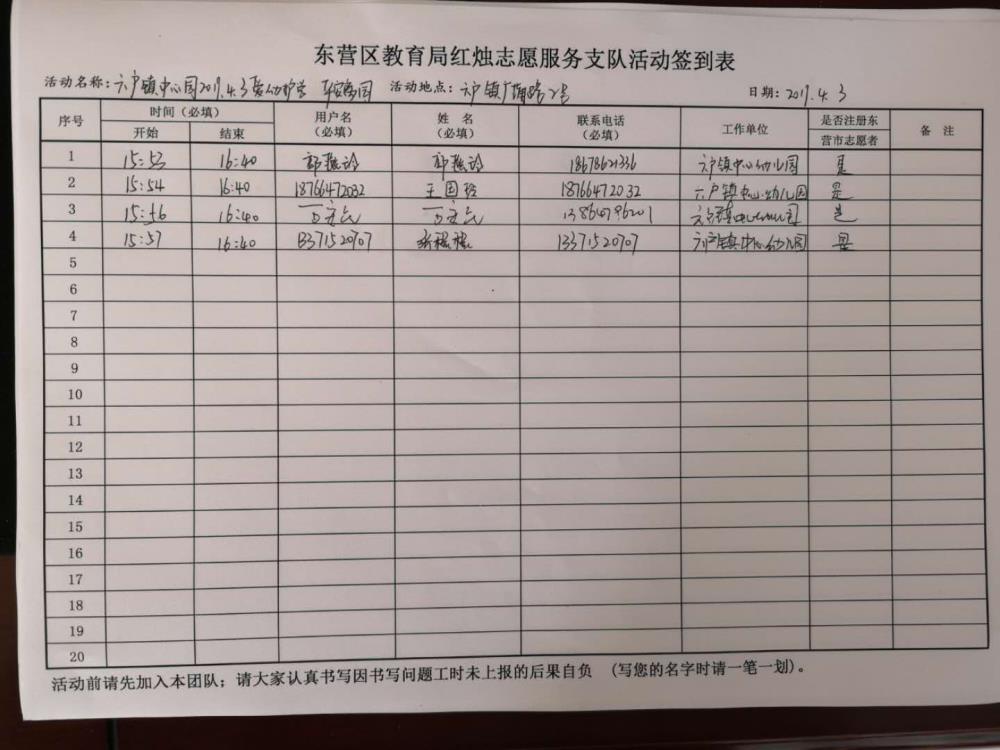 东营区教育局红烛志愿服务支队活动签到表
活动名称：六户镇中心园2019.4.3爱幼护学 活动地点：六户镇广蒲路2号 日期：2019.4.3
序号 时间（必填） 用户名（必填） 姓名（必填） 联系电话（必填） 工作单位 是否注册东营市志愿者 备注
开始 结束
1 15:53 16:40 18678621336 六户镇中心幼儿园 是
2 15:54 16:40 18766472032 王国玲 18766472032 六户镇中心幼儿园 是
3 15:56 16:40 13864796201 六户镇中心幼儿园 是
4 15:57 16:40 13371520707 13371520707 六户镇中心幼儿园 是
5
6
7
8
9
10
11
12
13
14
15
16
17
18
19
20
活动前请先加入本团队；请大家认真书写因书写问题工时未上报的后果自负 （写您的名字时请一笔一划）。